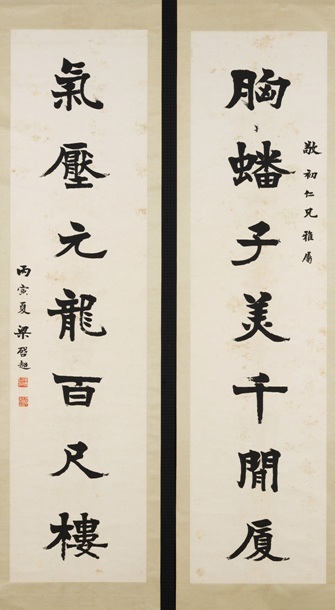 敬初仁兄雅属
胸蟠子美千閒厦
氣壓元龍百尺樓
丙寅夏 梁啓超